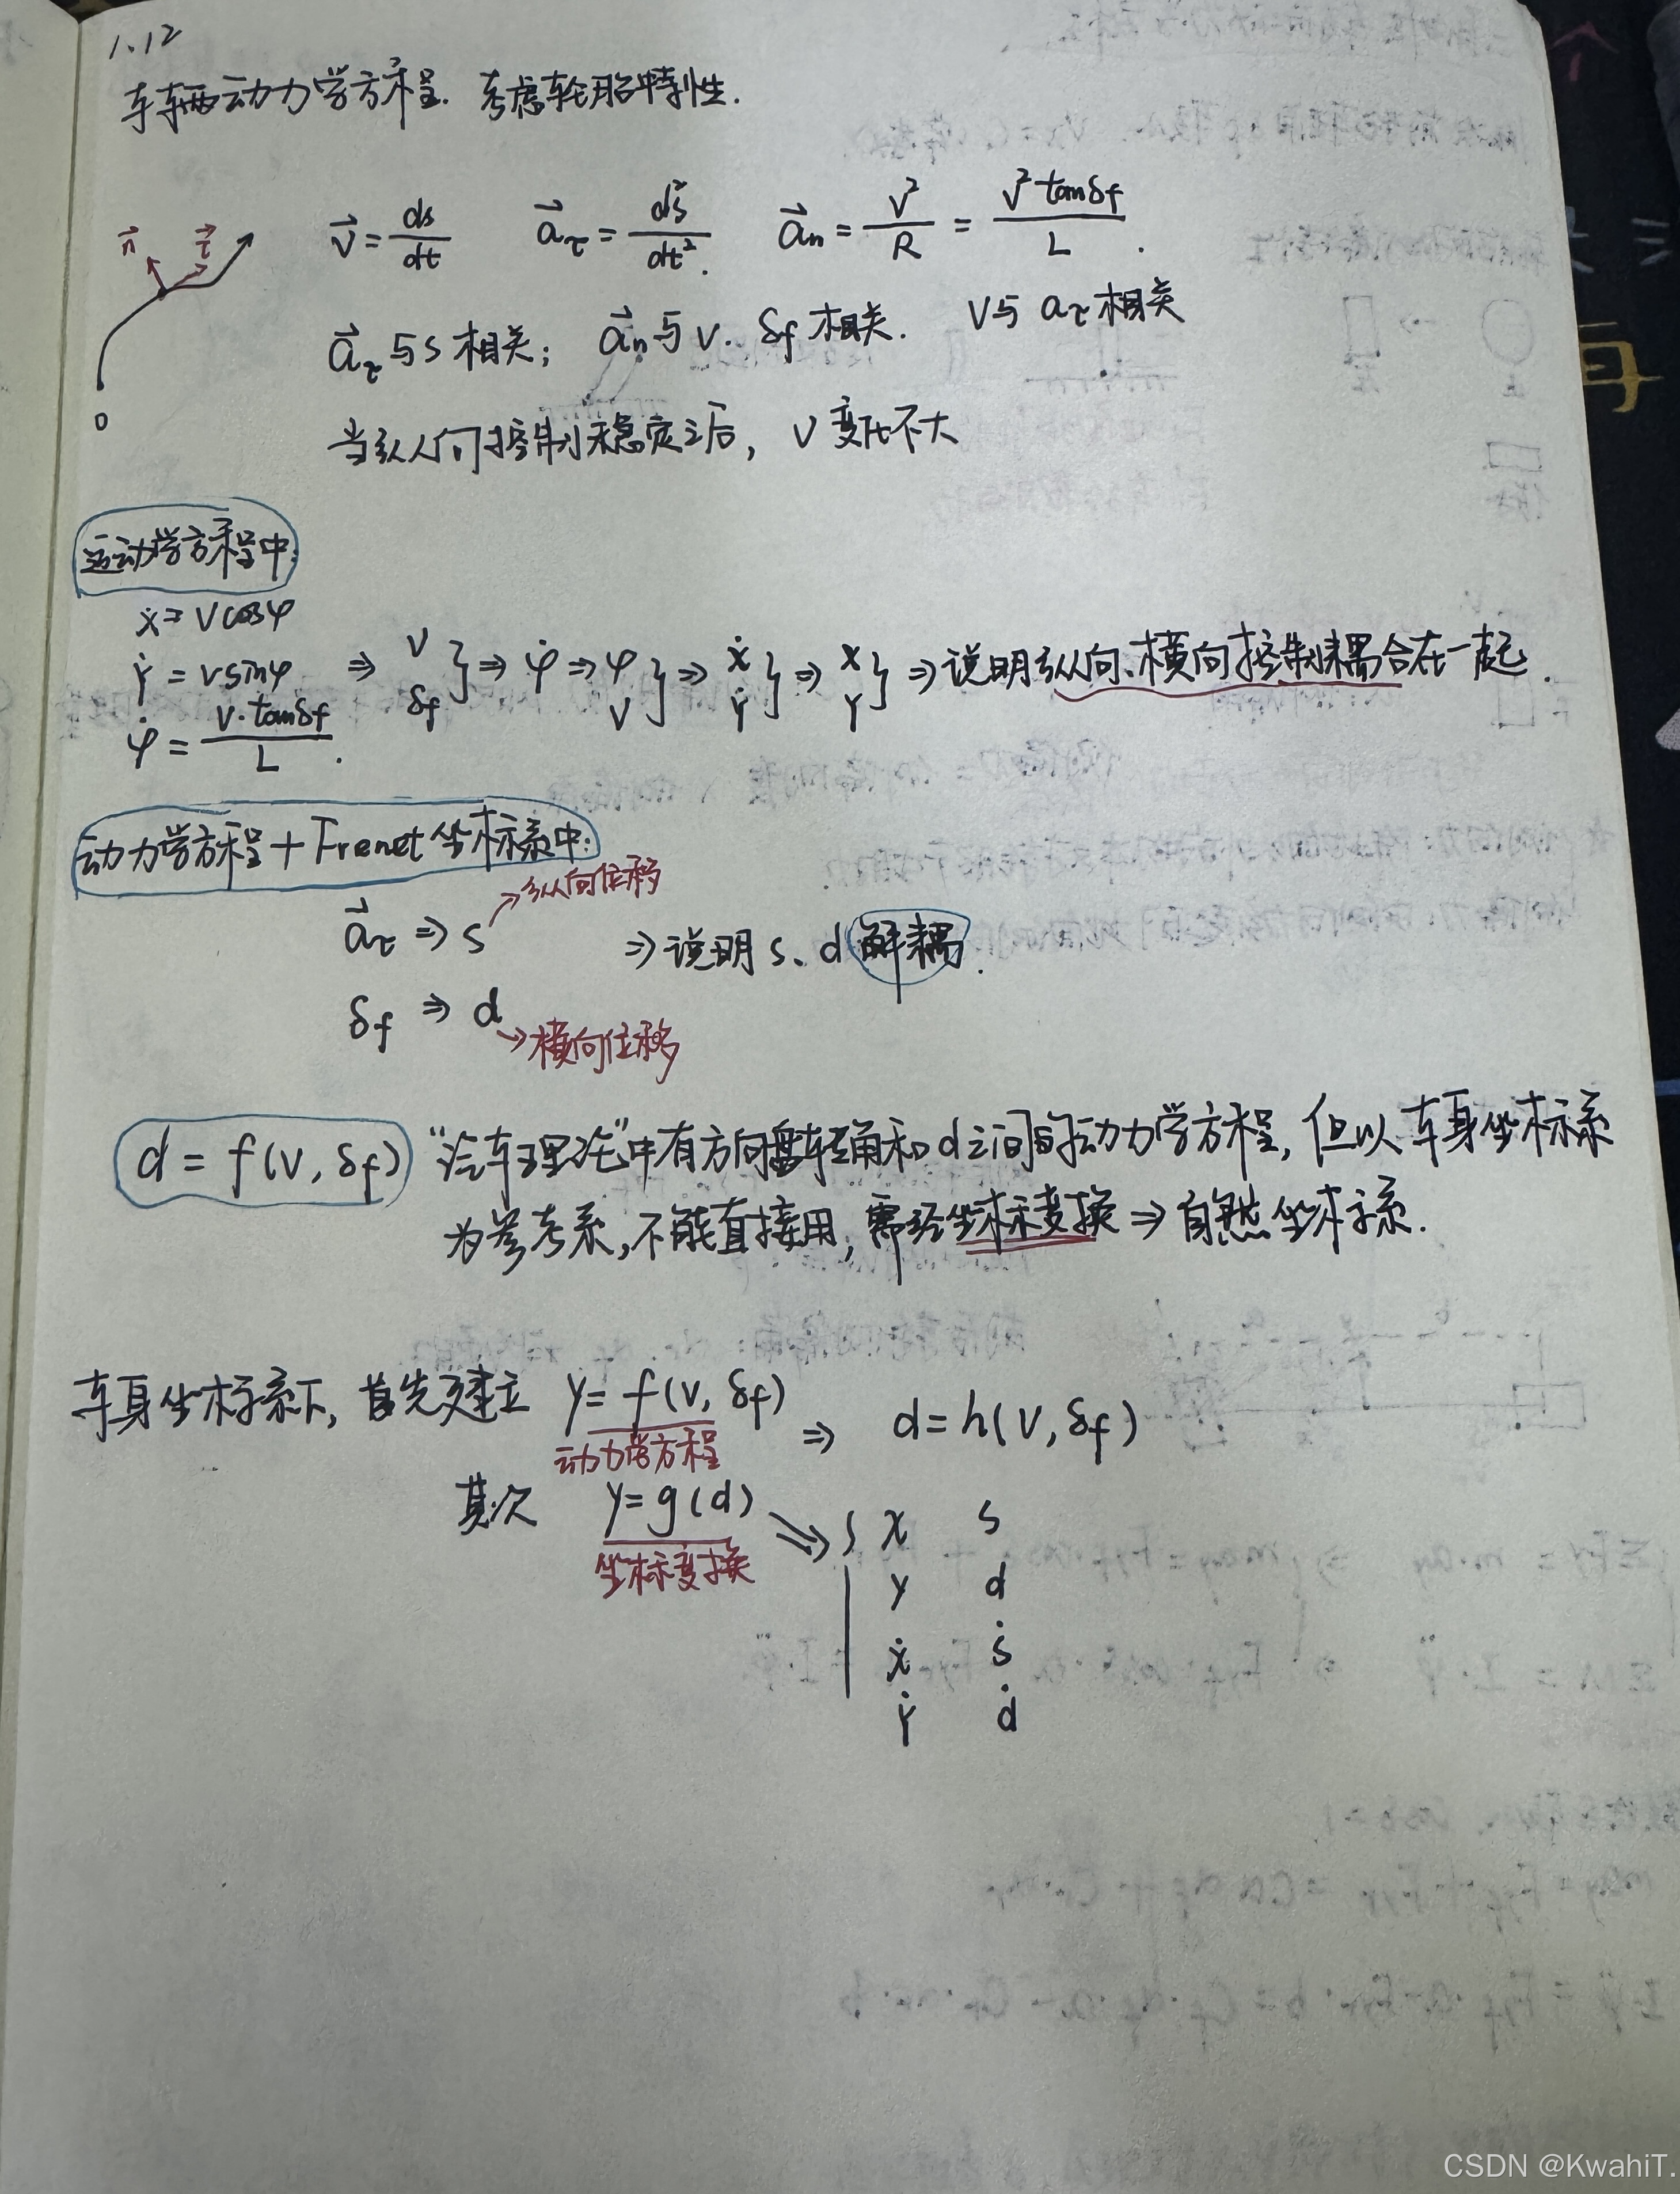 1.12
车辆动力学方程. 考虑轮胎特性.
n⃗ τ⃗
0
v⃗ = ds/dt  a⃗τ = d²s/dt².  a⃗n = v²/R = v² tanδf/L.
a⃗τ 与 s 相关; a⃗n 与 v. δf 相关. v 与 aτ 相关
当纵向控制稳定之后, v 变化不大
运动学方程中:
ẋ = vcosφ
Ẏ = vsinφ ⇒ v δf } ⇒ φ̇ ⇒ φ v } ⇒ ẋ Ẏ } ⇒ x Y } ⇒ 说明纵向、横向控制耦合在一起.
φ̇ = v·tanδf/L.
动力学方程 + Frenet 坐标系中:
a⃗τ ⇒ s →纵向位移 ⇒ 说明 s、d 解耦.
δf ⇒ d →横向位移
d = f(v, δf) “汽车理论”中有方向盘转角和 d 之间的动力学方程, 但以车身坐标系
为参考系, 不能直接用, 需经坐标变换 ⇒ 自然坐标系.
车身坐标系下, 首先建立 y = f(v, δf) ⇒ d = h(v, δf)
动力学方程
其次 y = g(d) ⇒
坐标变换
x s
y d
ẋ ṡ
Ẏ ḋ
CSDN @KwahiT.